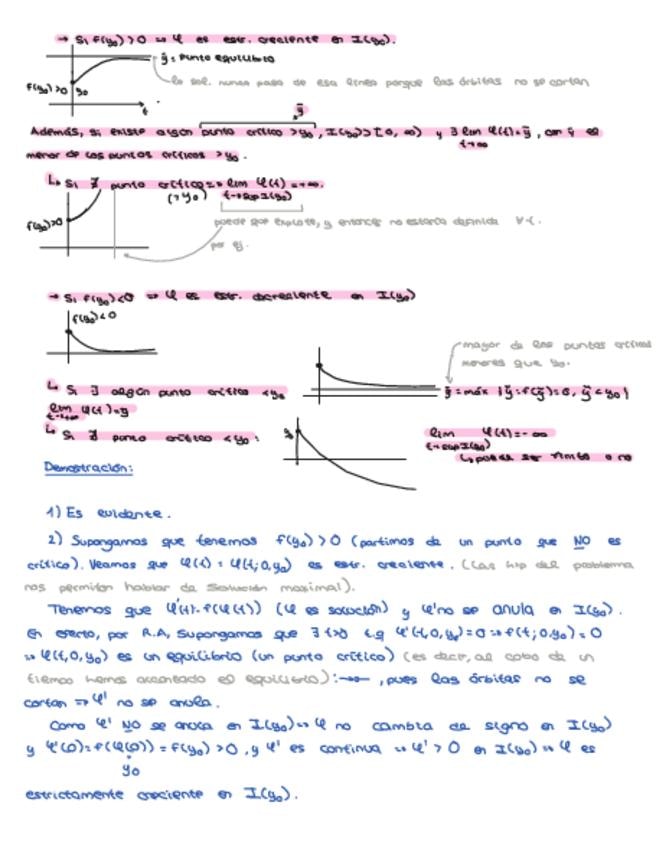 → Si f(y₀)>0 ⇒ φ es estr. creciente en I(y₀).
ȳ = punto equilibrio
la sol. nunca pasa de esa línea porque las órbitas no se cortan
f(y₀)>0 y₀
t
ȳ
Además, si existe algún punto crítico > y₀, I(y₀)⊃[0, ∞) y ∃ lim φ(t) = ȳ, con ȳ el
t→∞
menor de los puntos críticos > y₀.
↳ Si ∄ punto crítico ⇒ lim φ(t) = +∞.
(> y₀) t→sup I(y₀)
f(y₀)>0
puede que explote, y entonces no estaría definida ∀t.
por ej.
→ Si f(y₀)<0 ⇒ φ es estr. decreciente en I(y₀)
f(y₀)<0
mayor de los puntos críticos
menores que y₀.
↳ Si ∃ algún punto crítico < y₀
ȳ = máx {ỹ : f(ỹ) = 0, ỹ < y₀}
lim φ(t) = ȳ
t→+∞
↳ Si ∄ punto crítico < y₀:
lim φ(t) = -∞
t→sup I(y₀)
↳ puede ser finito o no
Demostración:
1) Es evidente.
2) Supongamos que tenemos f(y₀) > 0 (partimos de un punto que NO es
crítico). Veamos que φ(t) = φ(t; 0, y₀) es estr. creciente. (Las hip del problema
nos permiten hablar de solución maximal).
Tenemos que φ'(t) = f(φ(t)) (φ es solución) y φ' no se anula en I(y₀).
En efecto, por R.A, supongamos que ∃ t>0 t.q φ'(t,0,y₀) = 0 ⇒ f(t;0,y₀) = 0
⇒ φ(t,0,y₀) es un equilibrio (un punto crítico) (es decir, al cabo de un
tiempo hemos alcanzado el equilibrio): →←, pues las órbitas no se
cortan ⇒ φ' no se anula.
Como φ' NO se anula en I(y₀) ⇒ φ no cambia de signo en I(y₀)
y φ'(0) = f(φ(0)) = f(y₀) > 0, y φ' es continua ⇒ φ' > 0 en I(y₀) ⇒ φ es
y₀
estrictamente creciente en I(y₀).